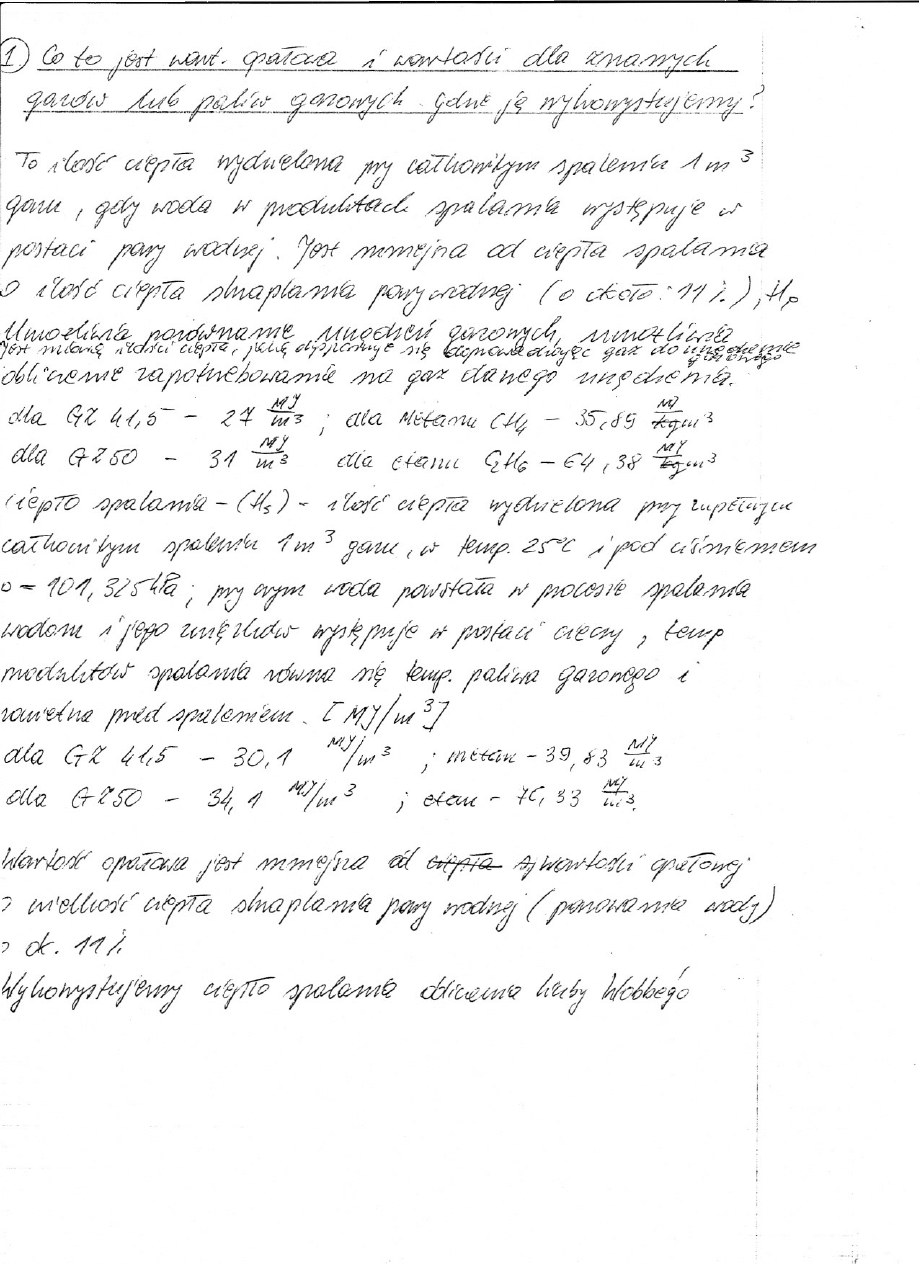 1) Co to jest wart. opałowa i wartości dla znanych
gazów lub paliw gazowych. Gdzie ją wykorzystujemy?
To ilość ciepła wydzielona przy całkowitym spaleniu 1 m³
gazu, gdy woda w produktach spalania występuje w
postaci pary wodnej. Jest mniejsza od ciepła spalania
o ilość ciepła skraplania pary wodnej (o około: 11%),
Umożliwia porównanie urządzeń gazowych, umożliwia
jest miarą ilości ciepła, jaką dysponuje się doprowadzając gaz do urządzenia gazowego
obliczenie zapotrzebowania na gaz danego urządzenia.
dla GZ 41,5 - 27 MJ/m³ ; dla Metanu CH₄ - 35,89 MJ/m³
dla GZ50 - 31 MJ/m³ dla etanu C₂H₆ - 64,38 MJ/m³
Ciepło spalania - (Hs) - ilość ciepła wydzielona przy zupełnym
całkowitym spaleniu 1m³ gazu, w temp. 25°C i pod ciśnieniem
p = 101,325 kPa ; przy czym woda powstała w procesie spalania
wodoru i jego związków występuje w postaci cieczy, temp
produktów spalania równa się temp. paliwa gazowego i
powietrza przed spaleniem. [MJ/m³]
dla GZ 41,5 - 30,1 MJ/m³ ; metan - 39,83 MJ/m³
dla GZ50 - 34,1 MJ/m³ ; etan - 70,33 MJ/m³.
Wartość opałowa jest mniejsza od ciepła wartości opałowej
o wielkość ciepła skraplania pary wodnej (parowania wody)
o ok. 11%
Wykorzystujemy ciepło spalania obliczenia liczby Wobbego